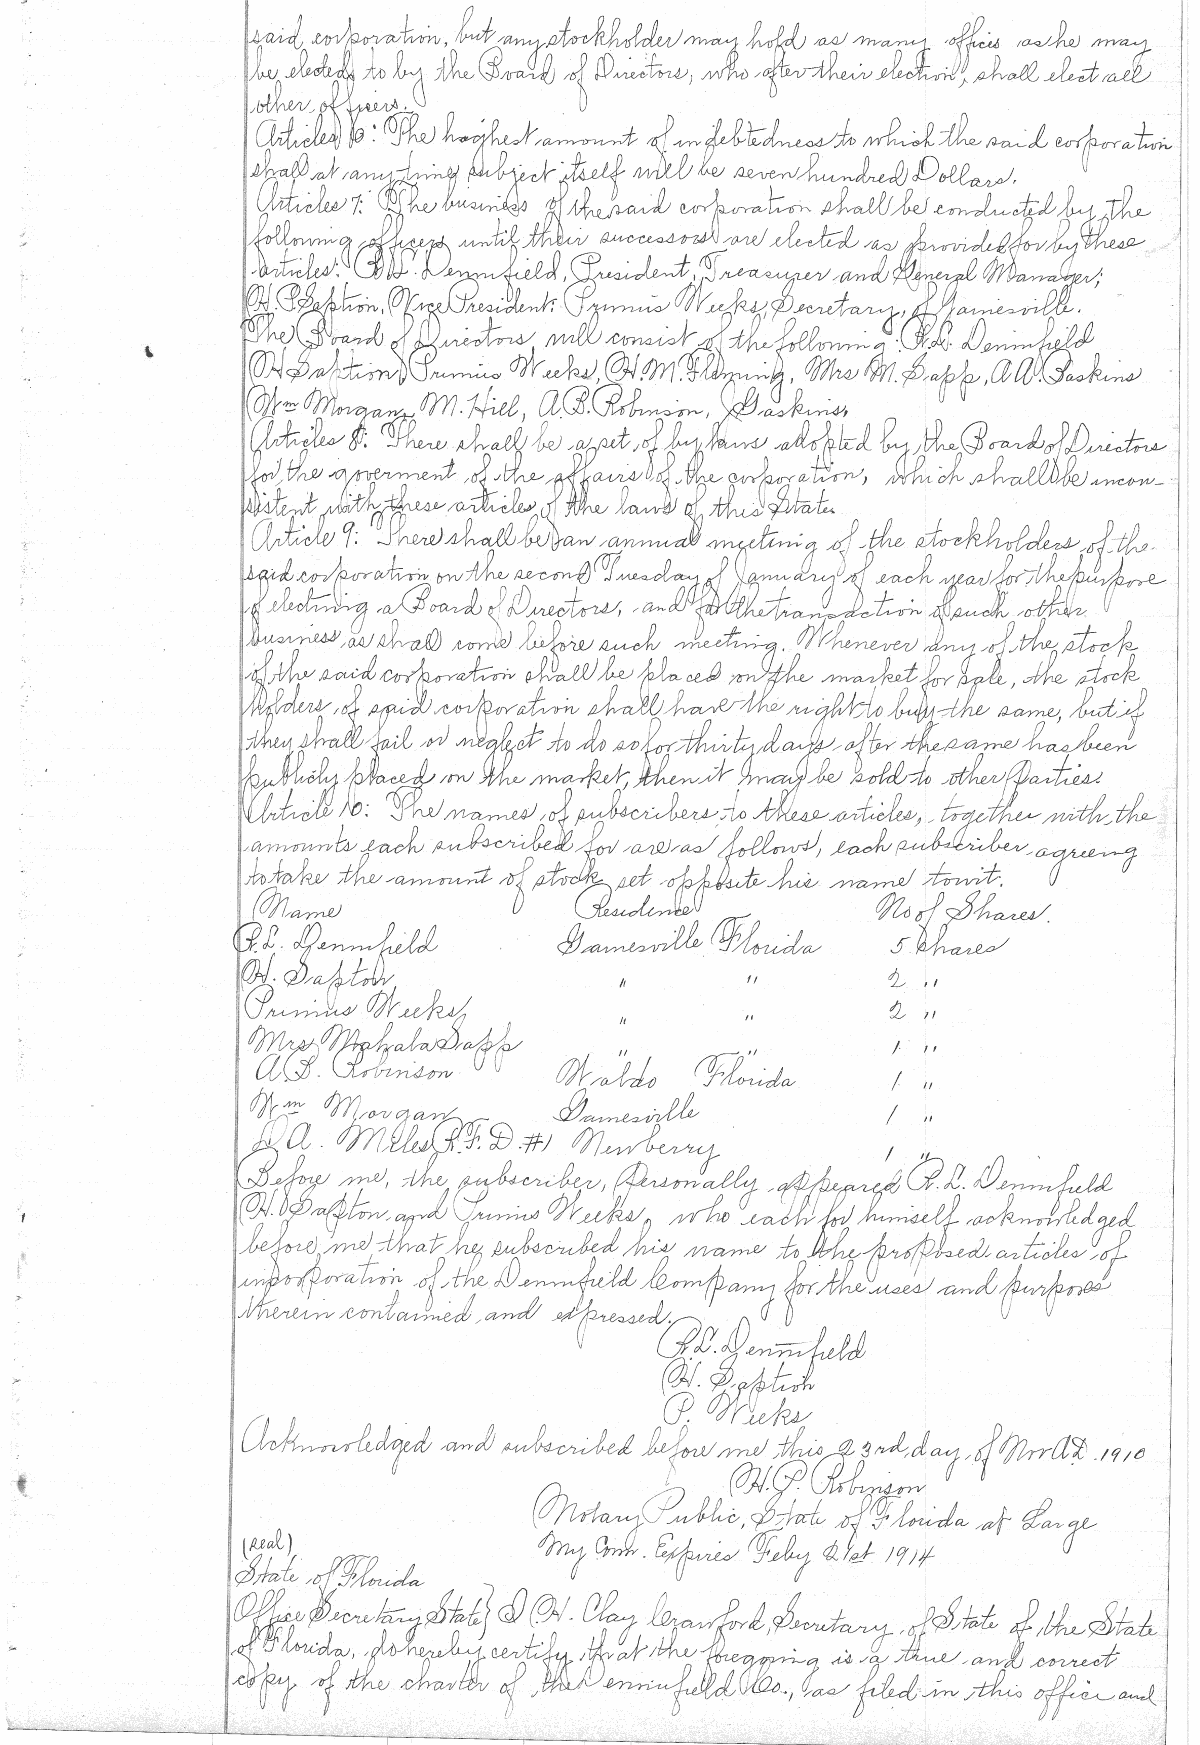 said corporation, but any stockholder may hold as many offices as he may
be elected to by the Board of Directors, who after their election, shall elect all
other officers.
Articles 6: The highest amount of indebtedness to which the said corporation
shall at any time subject itself will be seven hundred Dollars.
Articles 7: The business of the said corporation shall be conducted by the
following officers until their successors are elected as provided for by these
articles: Dennifield, President, Treasurer and General Manager;
H. Vice President: Primus Weeks, Secretary, of Gainesville.
The Board of Directors will consist of the following: R.L. Dennifield
H Primus Weeks, H.M. Fleming, Mrs M. Sapp, A.A. Gaskins
Wm Morgan, M. Hill, A.B. Robinson, Gaskins,
Articles 8: There shall be a set of by laws adopted by the Board of Directors
for the goverment of the affairs of the corporation, which shall be incon-
sistent with these articles of the laws of this State.
Article 9: There shall be an annual meeting of the stockholders of the
said corporation on the second Tuesday of January of each year for the purpose
of electing a Board of Directors, and for the transaction of such other
business as shall come before such meeting. Whenever any of the stock
of the said corporation shall be placed on the market for sale, the stock
holders of said corporation shall have the right to buy the same, but if
they shall fail or neglect to do so for thirty days after the same has been
publicly placed on the market, then it may be sold to other parties.
Article 10: The names of subscribers to these articles, together with the
amounts each subscribed for are as follows, each subscriber agreeing
to take the amount of stock set opposite his name towit.
Name Residence No of Shares.
R.L. Dennifield Gainesville Florida 5 Shares
H. Sapton " " 2 "
Primus Weeks " " 2 "
Mrs Mahala Sapp " " 1 "
A.B. Robinson Waldo Florida 1 "
Wm Morgan Gainesville 1 "
A. Miles R.F.D. #1 Newberry 1 "
Before me, the subscriber, Personally appeared R.L. Dennifield
H. Sapton and Primus Weeks, who each for himself acknowledged
before me that he subscribed his name to the proposed articles of
incorporation of the Dennifield Company for the uses and purposes
therein contained and expressed.
R.L. Dennifield
H. Saption
P. Weeks
Acknowledged and subscribed before me this 23rd, day, of Nov A.D. 1910
H.P. Robinson
Notary Public, State of Florida at Large
My Com. Expires Feby 21st 1914
(Seal)
State of Florida
Office Secretary State} I H. Clay Crawford, Secretary of State of the State
of Florida, do hereby certify that the foregoing is a true and correct
copy of the charter of the Dennifield Co., as filed in this office and